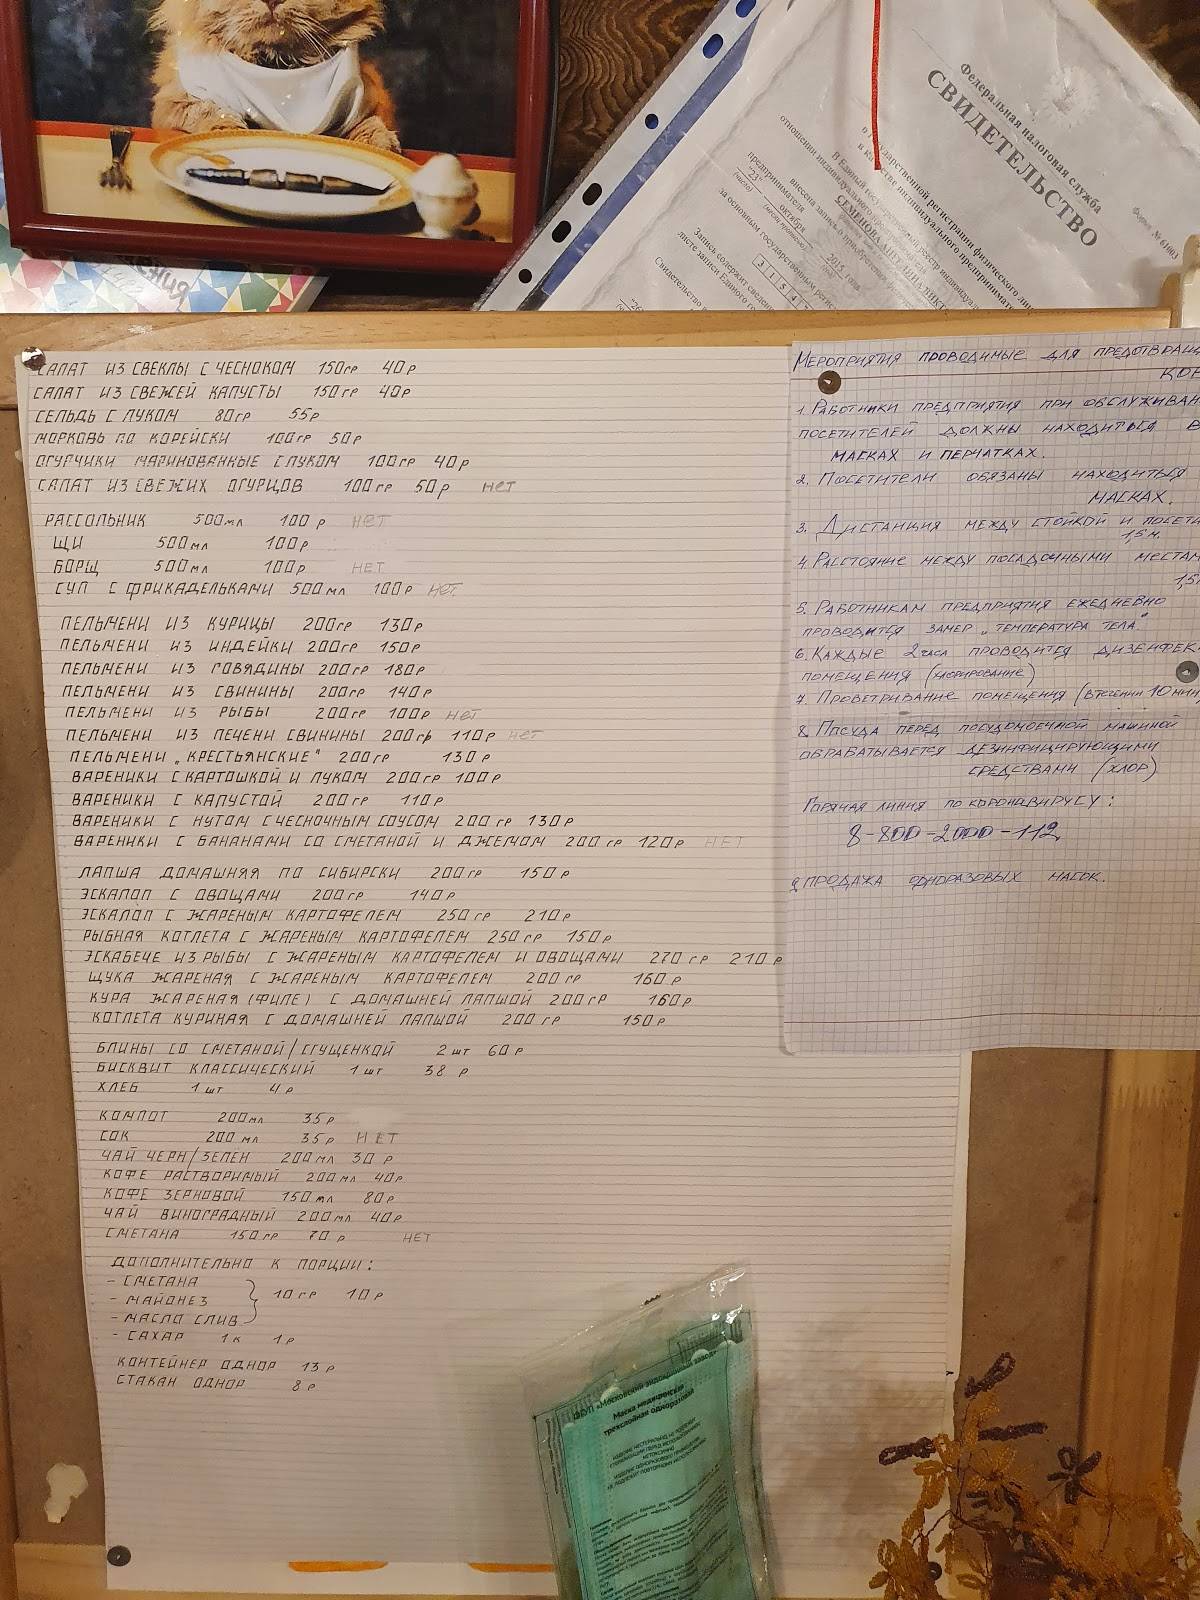 Федеральная налоговая служба
СВИДЕТЕЛЬСТВО
Форма №
о государственной регистрации физического
в качестве индивидуального
В Единый государственный
отношении индивидуального
предпринимателя
СЕМЕНОВА
внесена запись о приобретении физическим
"23" октября 2015 года
(число) (месяц прописью)
за основным государственным
3 1 5 4
Запись содержит
листе записи Единого
Свидетельство
САЛАТ ИЗ СВЕКЛЫ С ЧЕСНОКОМ 150гр 40р
САЛАТ ИЗ СВЕЖЕЙ КАПУСТЫ 150гр 40р
СЕЛЬДЬ С ЛУКОМ 80гр 55р
МОРКОВЬ ПО КОРЕЙСКИ 100гр 50р
ОГУРЧИКИ МАРИНОВАННЫЕ С ЛУКОМ 100гр 40р
САЛАТ ИЗ СВЕЖИХ ОГУРЦОВ 100гр 50р НЕТ
РАССОЛЬНИК 500мл 100р НЕТ
ЩИ 500мл 100р
БОРЩ 500мл 100р НЕТ
СУП С ФРИКАДЕЛЬКАМИ 500мл 100р НЕТ
ПЕЛЬМЕНИ ИЗ КУРИЦЫ 200гр 130р
ПЕЛЬМЕНИ ИЗ ИНДЕЙКИ 200гр 150р
ПЕЛЬМЕНИ ИЗ ГОВЯДИНЫ 200гр 180р
ПЕЛЬМЕНИ ИЗ СВИНИНЫ 200гр 140р
ПЕЛЬМЕНИ ИЗ РЫБЫ 200гр 100р НЕТ
ПЕЛЬМЕНИ ИЗ ПЕЧЕНИ СВИНИНЫ 200гр 110р НЕТ
ПЕЛЬМЕНИ „КРЕСТЬЯНСКИЕ" 200гр 130р
ВАРЕНИКИ С КАРТОШКОЙ И ЛУКОМ 200гр 100р
ВАРЕНИКИ С КАПУСТОЙ 200гр 110р
ВАРЕНИКИ С НУТОМ С ЧЕСНОЧНЫМ СОУСОМ 200гр 130р
ВАРЕНИКИ С БАНАНАМИ СО СМЕТАНОЙ И ДЖЕМОМ 200гр 120р НЕТ
ЛАПША ДОМАШНЯЯ ПО СИБИРСКИ 200гр 150р
ЭСКАЛОП С ОВОЩАМИ 200гр 140р
ЭСКАЛОП С ЖАРЕНЫМ КАРТОФЕЛЕМ 250гр 210р
РЫБНАЯ КОТЛЕТА С ЖАРЕНЫМ КАРТОФЕЛЕМ 250гр 150р
ЭСКАБЕЧЕ ИЗ РЫБЫ С ЖАРЕНЫМ КАРТОФЕЛЕМ И ОВОЩАМИ 270гр 210р
ЩУКА ЖАРЕНАЯ С ЖАРЕНЫМ КАРТОФЕЛЕМ 200гр 160р
КУРА ЖАРЕНАЯ (ФИЛЕ) С ДОМАШНЕЙ ЛАПШОЙ 200гр 160р
КОТЛЕТА КУРИНАЯ С ДОМАШНЕЙ ЛАПШОЙ 200гр 150р
БЛИНЫ СО СМЕТАНОЙ/СГУЩЕНКОЙ 2шт 60р
БИСКВИТ КЛАССИЧЕСКИЙ 1шт 38р
ХЛЕБ 1шт 4р
КОМПОТ 200мл 35р
СОК 200мл 35р НЕТ
ЧАЙ ЧЕРН/ЗЕЛЕН 200мл 30р
КОФЕ РАСТВОРИМЫЙ 200мл 40р
КОФЕ ЗЕРНОВОЙ 150мл 80р
ЧАЙ ВИНОГРАДНЫЙ 200мл 40р
СМЕТАНА 150гр 70р НЕТ
ДОПОЛНИТЕЛЬНО К ПОРЦИИ:
- СМЕТАНА
- МАЙОНЕЗ 10гр 10р
- МАСЛО СЛИВ
- САХАР 1к 1р
КОНТЕЙНЕР ОДНОР 13р
СТАКАН ОДНОР 8р
МЕРОПРИЯТИЯ ПРОВОДИМЫЕ ДЛЯ ПРЕДОТВРАЩ
КОР
1. РАБОТНИКИ ПРЕДПРИЯТИЯ ПРИ ОБСЛУЖИВАН
ПОСЕТИТЕЛЕЙ ДОЛЖНЫ НАХОДИТЬСЯ В
МАСКАХ И ПЕРЧАТКАХ.
2. ПОСЕТИТЕЛИ ОБЯЗАНЫ НАХОДИТЬСЯ
МАСКАХ.
3. ДИСТАНЦИЯ МЕЖДУ СТОЙКОЙ И ПОСЕТИ
1,5м.
4. РАССТОЯНИЕ МЕЖДУ ПОСАДОЧНЫМИ МЕСТАМ
1,5
5. РАБОТНИКАМ ПРЕДПРИЯТИЯ ЕЖЕДНЕВНО
ПРОВОДИТСЯ ЗАМЕР „ТЕМПЕРАТУРА ТЕЛА"
6. КАЖДЫЕ 2 часа ПРОВОДИТСЯ ДИЗЕНФЕК
ПОМЕЩЕНИЯ (хлорирование)
7. ПРОВЕТРИВАНИЕ ПОМЕЩЕНИЯ (В ТЕЧЕНИИ 10 МИН)
8. ПОСУДА ПЕРЕД ПОСУДОМОЕЧНОЙ МАШИНОЙ
ОБРАБАТЫВАЕТСЯ ДЕЗИНФИЦИРУЮЩИМИ
СРЕДСТВАМИ (ХЛОР)
ГОРЯЧАЯ ЛИНИЯ ПО КОРОНАВИРУСУ:
8-800-2000-112
9 ПРОДАЖА ОДНОРАЗОВЫХ МАСОК.
ФГУП «Московский эндокринный завод»
Маска медицинская
трехслойная одноразовая